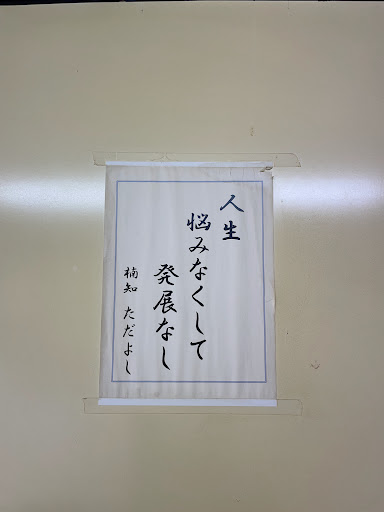 人生
悩みなくして
発展なし
楠知 ただよし